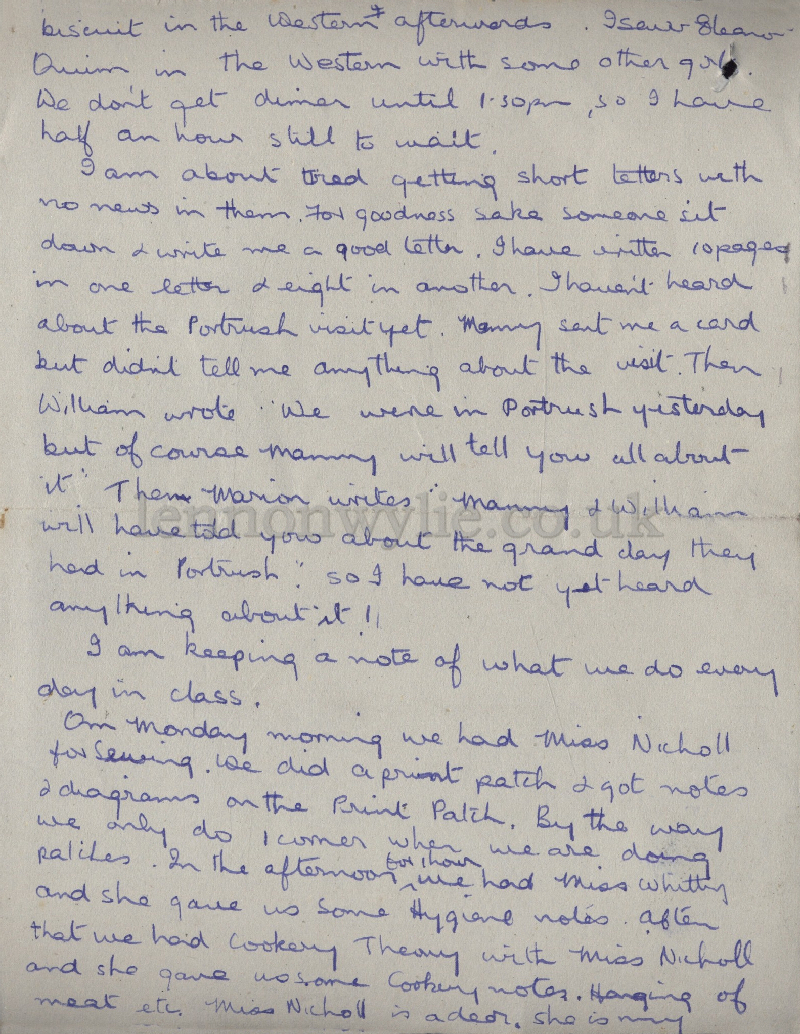 biscuit in the Western * afterwards. I saw Eleanor
Quinn in the Western with some other girls.
We don't get dinner until 1.30pm, so I have
half an hour still to wait.
I am about tired getting short letters with
no news in them. For goodness sake someone sit
down & write me a good letter. I have written 10 pages
in one letter & eight in another. I haven't heard
about the Portrush visit yet. Mammy sent me a card
but didn't tell me anything about the visit. Then
William wrote "We were in Portrush yesterday
but of course Mammy will tell you all about
it". Then Marion writes "Mammy & William
lennonwylie.co.uk
will have told you about the grand day they
had in Portrush". so I have not yet heard
anything about it!!
I am keeping a note of what we do every
day in class.
On Monday morning we had Miss Nicholl
for Sewing. We did a print patch & got notes
& diagrams on the Print Patch. By the way
we only do 1 corner when we are doing
patches. In the afternoon for 1 hour we had Miss Whitty
and she gave us some Hygiene notes. After
that we had Cookery Theory with Miss Nicholl
and she gave us some Cookery notes. Hanging of
meat etc. Miss Nicholl is a dear. she is my